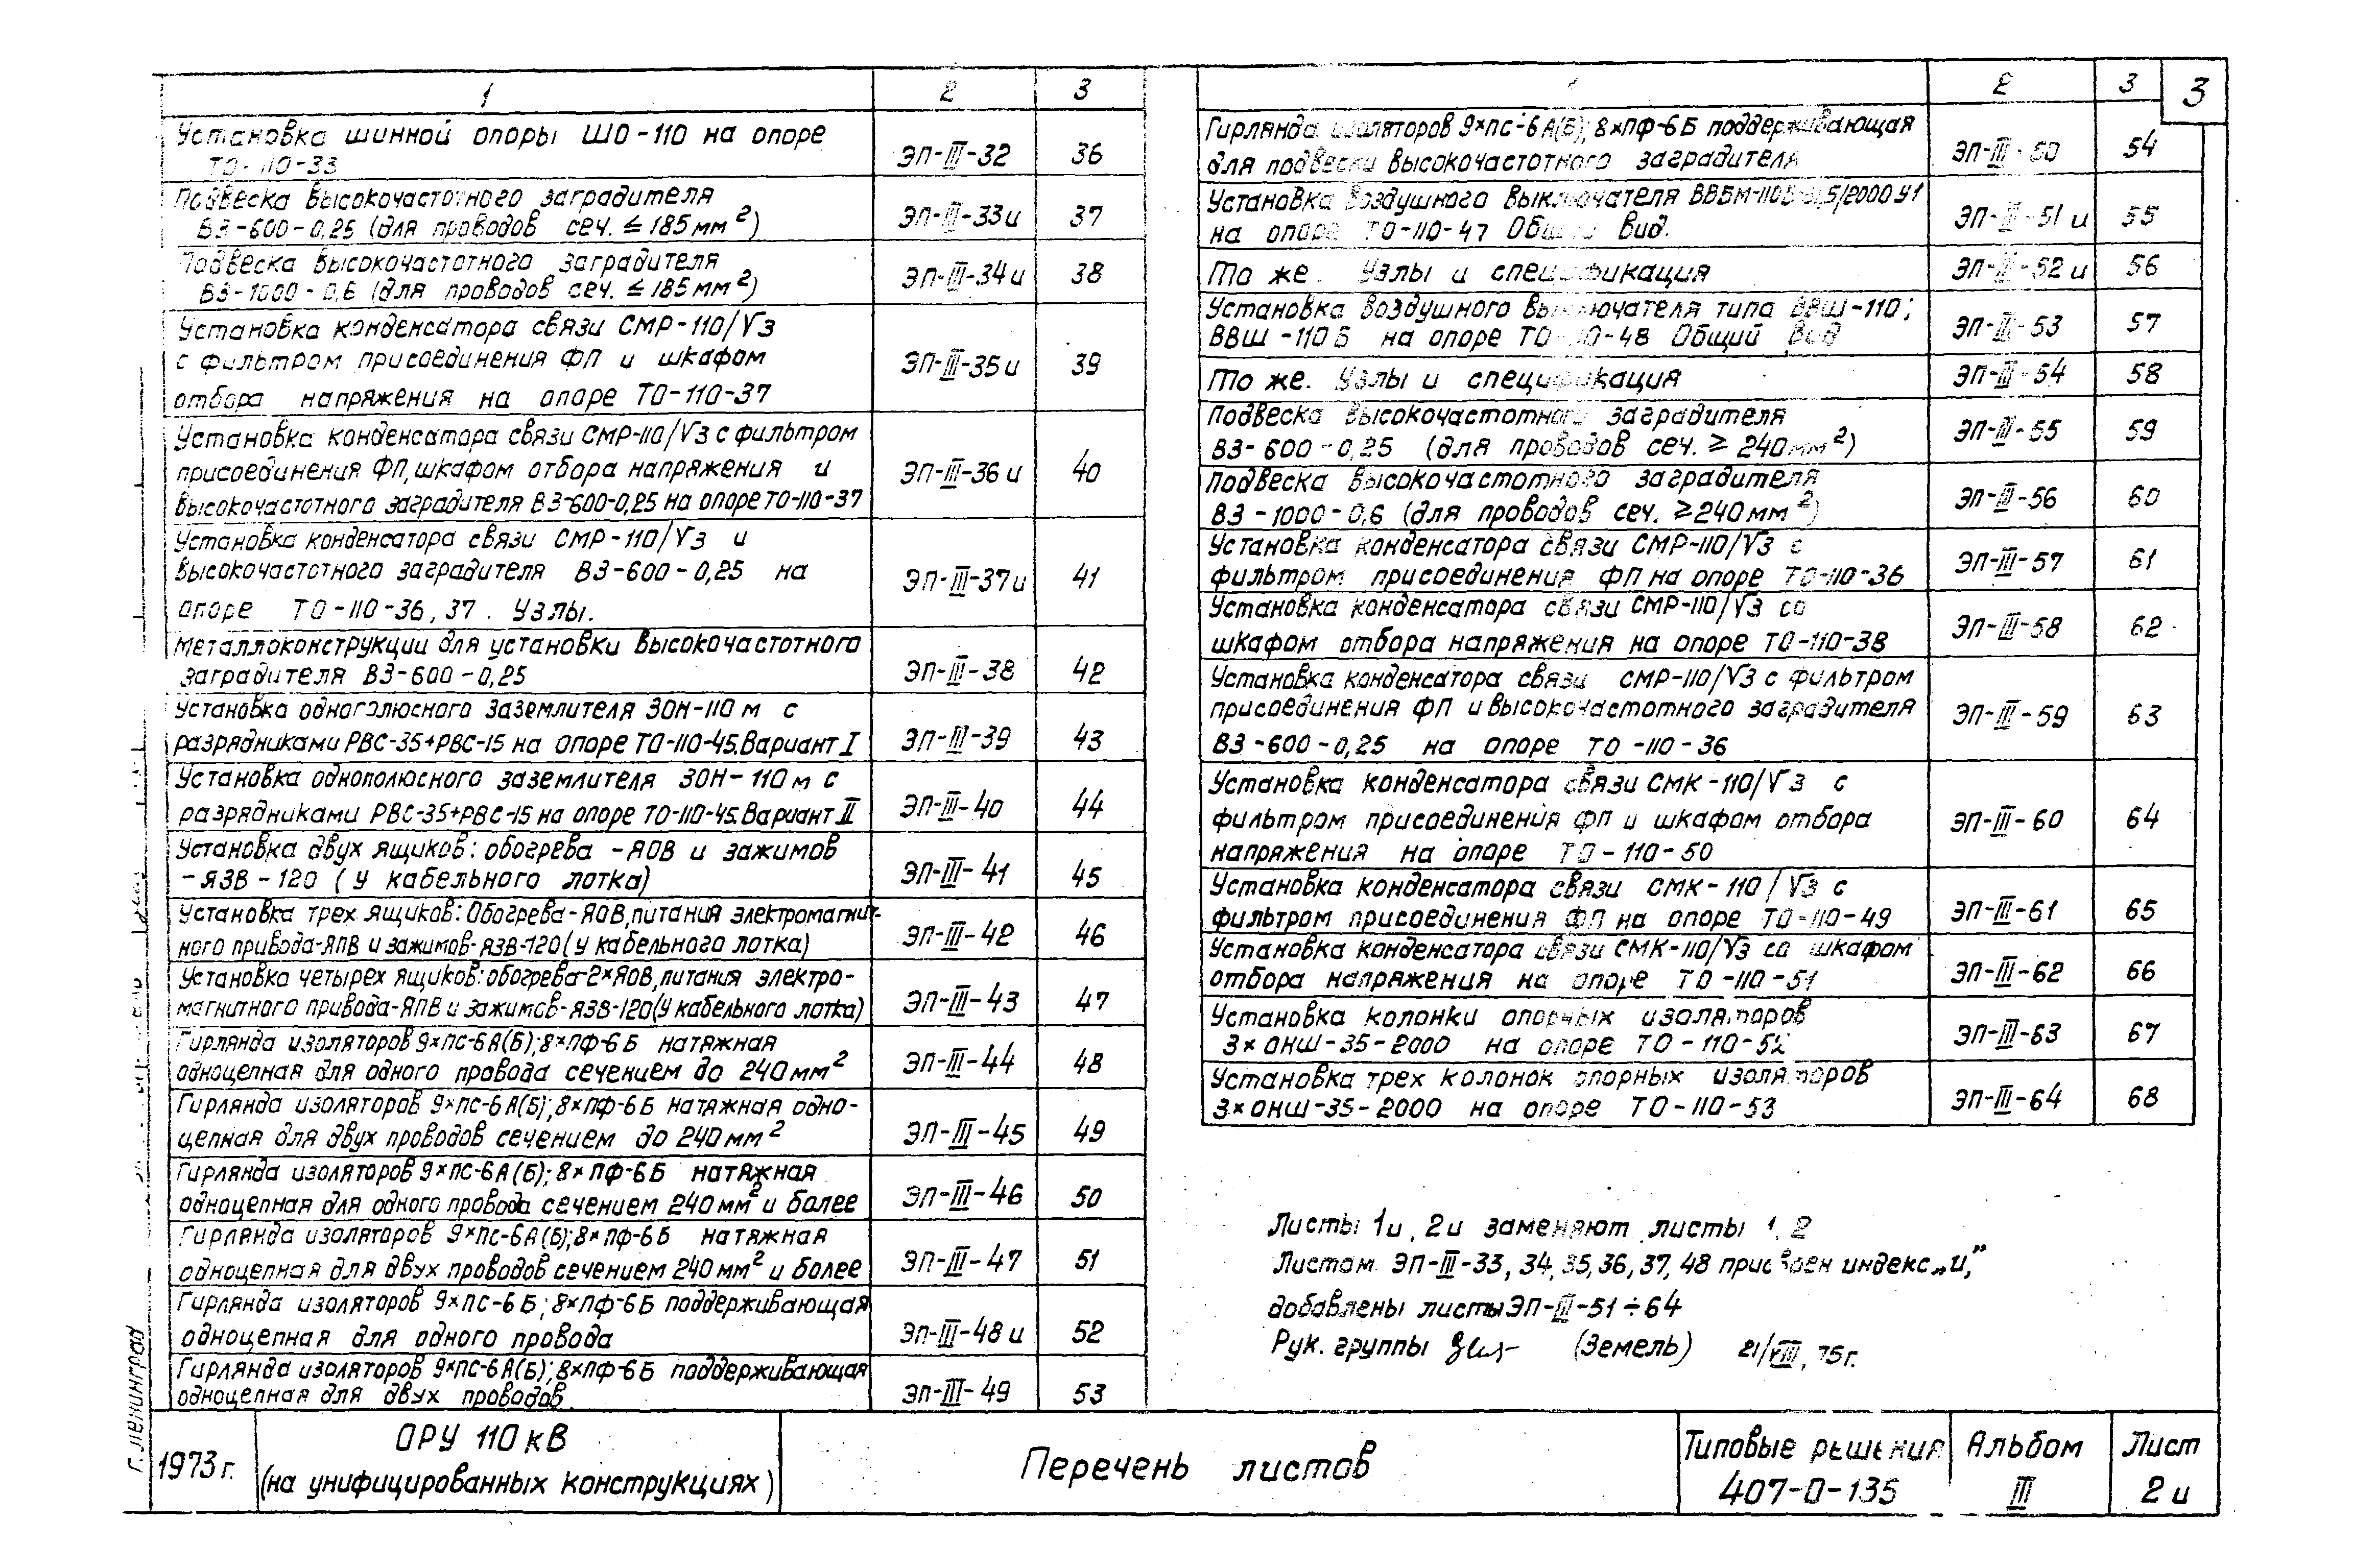 1 2 3
Установка шинной опоры ШО-110 на опоре
ТО-110-33 ЭП-III-32 36
Подвеска высокочастотного заградителя
ВЗ-600-0,25 (для проводов сеч. ≤ 185 мм²) ЭП-III-33и 37
Подвеска высокочастотного заградителя
ВЗ-1000-0,6 (для проводов сеч. ≤ 185 мм²) ЭП-III-34и 38
Установка конденсатора связи СМР-110/√3
с фильтром присоединения ФП и шкафом
отбора напряжения на опоре ТО-110-37 ЭП-III-35и 39
Установка конденсатора связи СМР-110/√3 с фильтром
присоединения ФП, шкафом отбора напряжения и
высокочастотного заградителя ВЗ-600-0,25 на опоре ТО-110-37 ЭП-III-36и 40
Установка конденсатора связи СМР-110/√3 и
высокочастотного заградителя ВЗ-600-0,25 на
опоре ТО-110-36, 37. Узлы. ЭП-III-37и 41
Металлоконструкции для установки высокочастотного
заградителя ВЗ-600-0,25 ЭП-III-38 42
Установка однополюсного заземлителя ЗОН-110м с
разрядниками РВС-35+РВС-15 на опоре ТО-110-45. Вариант I ЭП-III-39 43
Установка однополюсного заземлителя ЗОН-110м с
разрядниками РВС-35+РВС-15 на опоре ТО-110-45. Вариант II ЭП-III-40 44
Установка двух ящиков: обогрева -ЯОВ и зажимов
-ЯЗВ-120 (у кабельного лотка) ЭП-III-41 45
Установка трех ящиков: Обогрева-ЯОВ, питания электромагнит-
ного привода-ЯПВ и зажимов-ЯЗВ-120 (у кабельного лотка) ЭП-III-42 46
Установка четырех ящиков: обогрева-2×ЯОВ, питания электро-
магнитного привода-ЯПВ и зажимов-ЯЗВ-120 (у кабельного лотка) ЭП-III-43 47
Гирлянда изоляторов 9×ПС-6А(Б); 8×ПФ-6Б натяжная
одноцепная для одного провода сечением до 240 мм² ЭП-III-44 48
Гирлянда изоляторов 9×ПС-6А(Б); 8×ПФ-6Б натяжная одно-
цепная для двух проводов сечением до 240 мм² ЭП-III-45 49
Гирлянда изоляторов 9×ПС-6А(Б); 8×ПФ-6Б натяжная
одноцепная для одного провода сечением 240 мм² и более ЭП-III-46 50
Гирлянда изоляторов 9×ПС-6А(Б); 8×ПФ-6Б натяжная
одноцепная для двух проводов сечением 240 мм² и более ЭП-III-47 51
Гирлянда изоляторов 9×ПС-6Б; 8×ПФ-6Б поддерживающая
одноцепная для одного провода ЭП-III-48и 52
Гирлянда изоляторов 9×ПС-6А(Б); 8×ПФ-6Б поддерживающая
одноцепная для двух проводов ЭП-III-49 53
1 2 3
3
Гирлянда изоляторов 9×ПС-6А(Б); 8×ПФ-6Б поддерживающая
для подвески высокочастотного заградителя ЭП-III-50 54
Установка воздушного выключателя ВВБМ-110Б-31,5/2000 У1
на опоре ТО-110-47 Общий вид. ЭП-III-51и 55
То же. Узлы и спецификация ЭП-III-52и 56
Установка воздушного выключателя типа ВВШ-110;
ВВШ-110Б на опоре ТО-110-48 Общий вид ЭП-III-53 57
То же. Узлы и спецификация ЭП-III-54 58
Подвеска высокочастотного заградителя
ВЗ-600-0,25 (для проводов сеч. ≥ 240 мм²) ЭП-III-55 59
Подвеска высокочастотного заградителя
ВЗ-1000-0,6 (для проводов сеч. ≥ 240 мм²) ЭП-III-56 60
Установка конденсатора связи СМР-110/√3 с
фильтром присоединения ФП на опоре ТО-110-36 ЭП-III-57 61
Установка конденсатора связи СМР-110/√3 со
шкафом отбора напряжения на опоре ТО-110-38 ЭП-III-58 62
Установка конденсатора связи СМР-110/√3 с фильтром
присоединения ФП и высокочастотного заградителя
ВЗ-600-0,25 на опоре ТО-110-36 ЭП-III-59 63
Установка конденсатора связи СМК-110/√3 с
фильтром присоединения ФП и шкафом отбора
напряжения на опоре ТО-110-50 ЭП-III-60 64
Установка конденсатора связи СМК-110/√3 с
фильтром присоединения ФП на опоре ТО-110-49 ЭП-III-61 65
Установка конденсатора связи СМК-110/√3 со шкафом
отбора напряжения на опоре ТО-110-51 ЭП-III-62 66
Установка колонки опорных изоляторов
3×ОНШ-35-2000 на опоре ТО-110-52 ЭП-III-63 67
Установка трех колонок опорных изоляторов
3×ОНШ-35-2000 на опоре ТО-110-53 ЭП-III-64 68
Листы 1и, 2и заменяют листы 1, 2
Листам ЭП-III-33, 34, 35, 36, 37, 48 присвоен индекс „и”,
добавлены листы ЭП-III-51÷64
Рук. группы (Земель) 21/VIII, 75г.
г. Ленинград
1973г.
ОРУ 110 кВ
(на унифицированных конструкциях)
Перечень листов
Типовые решения
407-0-135
Альбом
III
Лист
2и